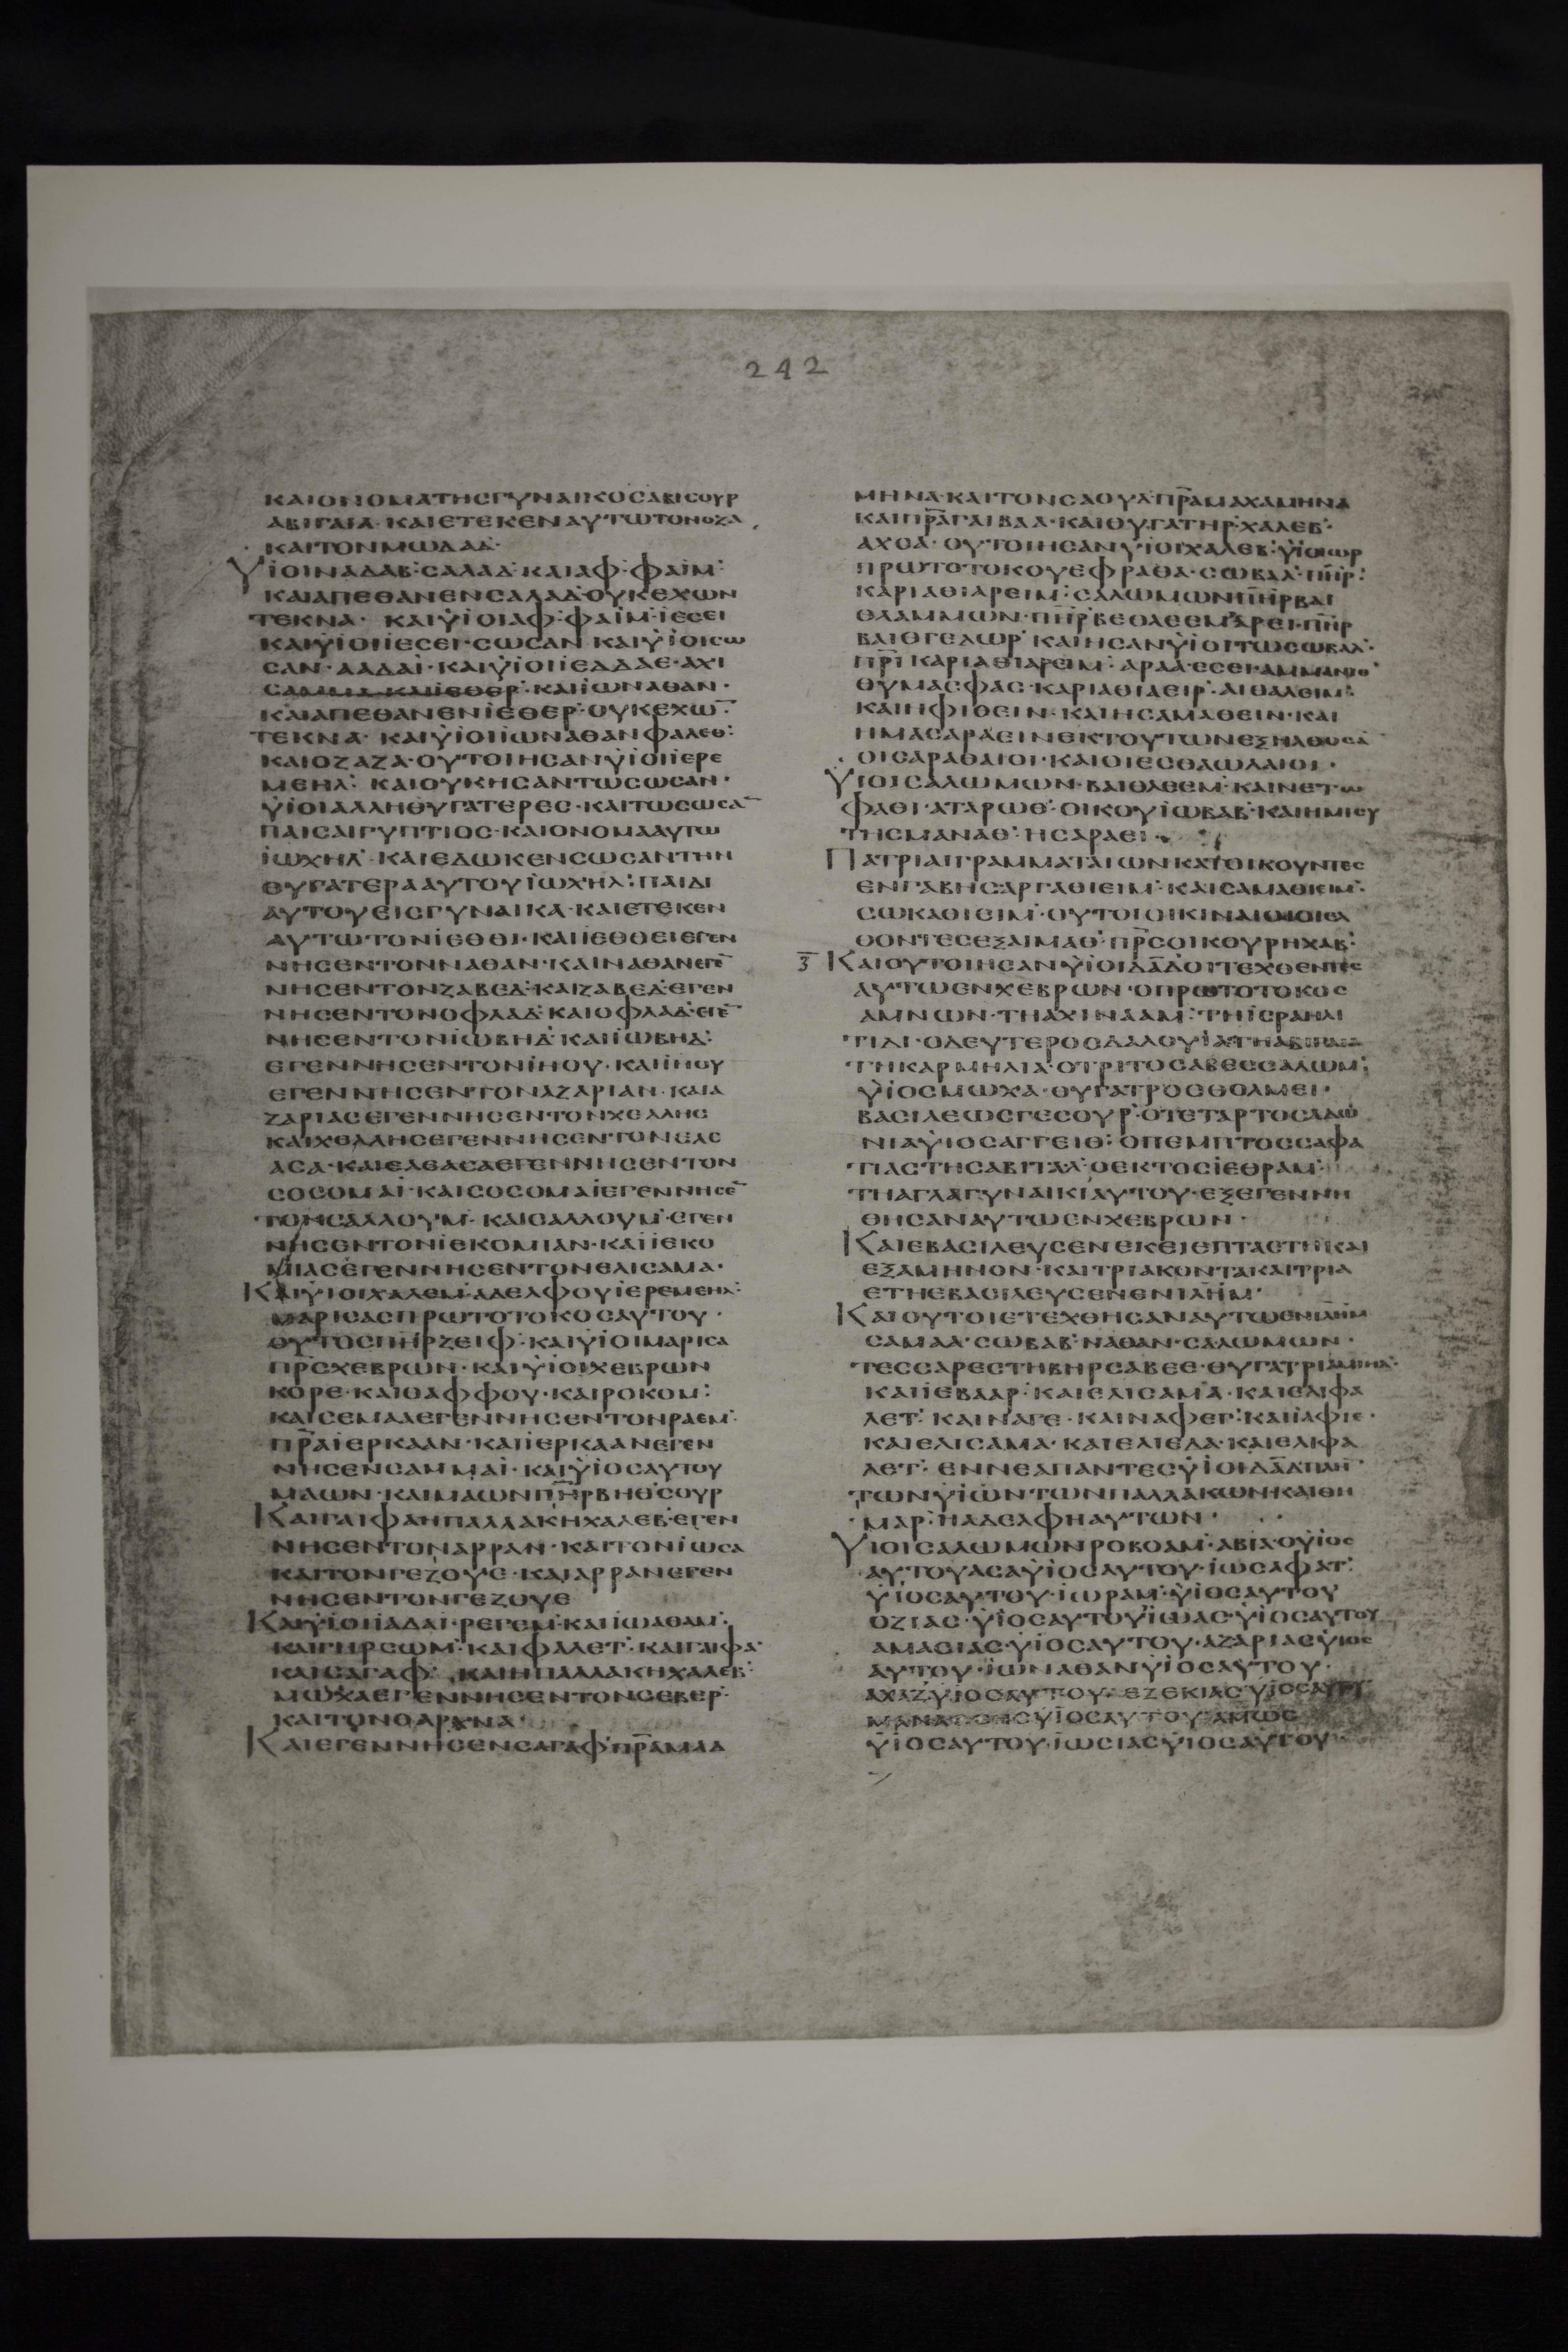 242
ΚΑΙΟΝΟΜΑΤΗΣΓΥΝΑΙΚΟΣΑΒΙΣΟΥΡ
ΑΒΙΓΑΙΑ·ΚΑΙΕΤΕΚΕΝΑΥΤΩΤΟΝΟΖΑ
ΚΑΙΤΟΝΜΩΔΑΔ·
ΥΪΟΙΝΑΔΑΒ·ΣΑΛΑΔ·ΚΑΙΑΦ·ΦΑΪΜ·
ΚΑΙΑΠΕΘΑΝΕΝΣΑΛΑΔ·ΟΥΚΕΧΩΝ
ΤΕΚΝΑ· ΚΑΙΫΪΟΙΑΦ·ΦΑΪΜ·ΪΕΣΕΙ
ΚΑΙΫΪΟΙΪΕΣΕΙ·ΣΩΣΑΝ ΚΑΙΫΪΟΙΣΩ
ΣΑΝ·ΑΑΔΑΪ·ΚΑΙΫΪΟΙΪΕΔΔΑΕ·ΑΧΙ
ΣΑΜΜΑ·ΚΑΙΪΕΘΕΡ·ΚΑΙΪΩΝΑΘΑΝ·
ΚΑΙΑΠΕΘΑΝΕΝΪΕΘΕΡ·ΟΥΚΕΧΩ̅
ΤΕΚΝΑ· ΚΑΙΫΪΟΙΪΩΝΑΘΑΝΦΑΛΕΘ·
ΚΑΙΟΖΑΖΑ·ΟΥΤΟΙΗΣΑΝΫΪΟΙΪΕΡΕ
ΜΕΗΛ· ΚΑΙΟΥΚΗΣΑΝΤΩΣΩΣΑΝ·
ΫΪΟΙΑΛΛΗΘΥΓΑΤΕΡΕΣ·ΚΑΙΤΩΣΩΣΑ̅
ΠΑΙΣΑΙΓΥΠΤΙΟΣ·ΚΑΙΟΝΟΜΑΑΥΤΩ
ΪΩΧΗΛ·ΚΑΙΕΔΩΚΕΝΣΩΣΑΝΤΗΝ
ΘΥΓΑΤΕΡΑΑΥΤΟΥΪΩΧΗΛ·ΠΑΙΔΙ
ΑΥΤΟΥΕΙΣΓΥΝΑΙΚΑ·ΚΑΙΕΤΕΚΕΝ
ΑΥΤΩΤΟΝΪΕΘΘΙ·ΚΑΙΪΕΘΘΕΙΕΓΕΝ
ΝΗΣΕΝΤΟΝΝΑΘΑΝ·ΚΑΙΝΑΘΑΝΕΓΕ̅
ΝΗΣΕΝΤΟΝΖΑΒΕΔ·ΚΑΙΖΑΒΕΔ·ΕΓΕΝ
ΝΗΣΕΝΤΟΝΟΦΛΑΔ·ΚΑΙΟΦΛΑΔ·ΕΓΕ̅
ΝΗΣΕΝΤΟΝΪΩΒΗΔ·ΚΑΙΪΩΒΗΔ·
ΕΓΕΝΝΗΣΕΝΤΟΝΪΗΟΥ·ΚΑΙΪΗΟΥ
ΕΓΕΝΝΗΣΕΝΤΟΝΑΖΑΡΙΑΝ·ΚΑΙΑ
ΖΑΡΙΑΣΕΓΕΝΝΗΣΕΝΤΟΝΧΕΛΛΗΣ
ΚΑΙΧΕΛΛΗΣΕΓΕΝΝΗΣΕΝΤΟΝΕΛΕ
ΑΣΑ·ΚΑΙΕΛΕΑΣΑΕΓΕΝΝΗΣΕΝΤΟΝ
ΣΟΣΟΜΑΪ·ΚΑΙΣΟΣΟΜΑΪΕΓΕΝΝΗΣΕ̅
ΤΟΝΣΑΛΛΟΥΜ·ΚΑΙΣΑΛΛΟΥΜ·ΕΓΕΝ
ΝΗΣΕΝΤΟΝΪΕΚΟΜΙΑΝ·ΚΑΙΪΕΚΟ
ΜΙΑΣΕΓΕΝΝΗΣΕΝΤΟΝΕΛΙΣΑΜΑ·
ΚΑΙΫΪΟΙΧΑΛΕΜ·ΑΔΕΛΦΟΥΪΕΡΕΜΕΗΛ·
ΜΑΡΙΣΑΣΠΡΩΤΟΤΟΚΟΣΑΥΤΟΥ·
ΟΥΤΟΣΠΗ̅ΡΖΕΙΦ·ΚΑΙΫΪΟΙΜΑΡΙΣΑ
ΠΡ̅ΣΧΕΒΡΩΝ·ΚΑΙΫΪΟΙΧΕΒΡΩΝ
ΚΟΡΕ·ΚΑΙΘΑΦΦΟΥ·ΚΑΙΡΟΚΟΜ·
ΚΑΙΣΕΜΑΑΕΓΕΝΝΗΣΕΝΤΟΝΡΑΕΜ·
ΠΡ̅ΑΪΕΡΚΑΑΝ·ΚΑΙΪΕΡΚΑΑΝΕΓΕΝ
ΝΗΣΕΝΣΑΜΜΑΪ·ΚΑΙΫΪΟΣΑΥΤΟΥ
ΜΑΩΝ·ΚΑΙΜΑΩΝΠΗ̅ΡΒΗΘΣΟΥΡ
ΚΑΙΓΑΙΦΑΗΠΑΛΛΑΚΗΧΑΛΕΒ·ΕΓΕΝ
ΝΗΣΕΝΤΟΝΑΡΡΑΝ·ΚΑΙΤΟΝΪΩΣΑ
ΚΑΙΤΟΝΓΕΖΟΥΕ·ΚΑΙΑΡΡΑΝΕΓΕΝ
ΝΗΣΕΝΤΟΝΓΕΖΟΥΕ
ΚΑΙΫΪΟΙΪΑΔΑΪ·ΡΕΓΕΜ·ΚΑΙΪΩΑΘΑΜ·
ΚΑΙΓΗΡΣΩΜ·ΚΑΙΦΑΛΕΤ·ΚΑΙΓΑΙΦΑ·
ΚΑΙΣΑΓΑΦ· ΚΑΙΗΠΑΛΛΑΚΗΧΑΛΕΒ·
ΜΩΧΑΕΓΕΝΝΗΣΕΝΤΟΝΣΕΒΕΡ·
ΚΑΙΤΟΝΘΑΡΧΝΑ·
ΚΑΙΕΓΕΝΝΗΣΕΝΣΑΓΑΦ·ΠΡ̅ΑΜΑΑ
ΜΗΝΑ·ΚΑΙΤΟΝΣΑΟΥΛ·ΠΡ̅ΑΜΑΧΑΜΗΝΑ
ΚΑΙΠΡ̅ΑΓΑΙΒΑΑ·ΚΑΙΘΥΓΑΤΗΡΧΑΛΕΒ·
ΑΧΣΑ·ΟΥΤΟΙΗΣΑΝΫΪΟΙΧΑΛΕΒ·ΫΪΟΙΩΡ
ΠΡΩΤΟΤΟΚΟΥΕΦΡΑΘΑ·ΣΩΒΑΛ·ΠΗ̅Ρ·
ΚΑΡΙΑΘΙΑΡΕΙΜ·ΣΑΛΩΜΩΝΠΗ̅ΡΒΑΙ
ΘΛΑΜΜΩΝ·ΠΗ̅ΡΒΕΘΛΕΕΜ·ΑΡΕΙ·ΠΗ̅Ρ
ΒΑΙΘΓΕΔΩΡ·ΚΑΙΗΣΑΝΫΪΟΙΤΩΣΩΒΑΛ·
ΠΡ̅ΙΚΑΡΙΑΘΙΑΡΕΙΜ·ΑΡΑΑ·ΕΣΕΙ·ΑΜΜΑΝΙΘ·
ΘΥΜΑΣΦΑΣ·ΚΑΡΙΑΘΙΑΕΙΡ·ΑΙΘΑΛΕΙΜ·
ΚΑΙΗΦΙΘΕΙΝ·ΚΑΙΗΣΑΜΑΘΕΙΝ·ΚΑΙ
ΗΜΑΣΑΡΑΕΙΝΕΚΤΟΥΤΩΝΕΞΗΛΘΟΣΑ̅
ΟΙΣΑΡΑΘΑΙΟΙ·ΚΑΙΟΙΕΣΘΑΩΛΑΙΟΙ·
ΥΪΟΙΣΑΛΩΜΩΝ·ΒΑΙΘΛΕΕΜ·ΚΑΙΝΕΤΩ
ΦΑΘΙ·ΑΤΑΡΩΘ·ΟΙΚΟΥΪΩΒΑΒ·ΚΑΙΗΜΙΣΥ
ΤΗΣΜΑΝΑΘ·ΗΣΑΡΑΕΙ·
ΠΑΤΡΙΑΙΓΡΑΜΜΑΤΑΙΩΝΚΑΤΟΙΚΟΥΝΤΕΣ
ΕΝΓΑΒΗΣΑΡΓΑΘΙΕΙΜ·ΚΑΙΣΑΜΑΘΙΕΙΜ·
ΣΩΚΑΘΙΕΙΜ·ΟΥΤΟΙΟΙΚΙΝΑΙΟΙΟΙΕΛ
ΘΟΝΤΕΣΕΞΑΙΜΑΘ·ΠΡ̅ΣΟΙΚΟΥΡΗΧΑΒ·
Γ̅ ΚΑΙΟΥΤΟΙΗΣΑΝΫΪΟΙΔΑ̅ΔΟΙΤΕΧΘΕΝΤΕΣ
ΑΥΤΩΕΝΧΕΒΡΩΝ·ΟΠΡΩΤΟΤΟΚΟΣ
ΑΜΝΩΝ·ΤΗΑΧΙΝΑΑΜ·ΤΗΪΣΡΑΗΛΙ
ΤΙΔΙ·ΟΔΕΥΤΕΡΟΣΔΑΛΟΥΪΑΤΗΑΒΙΓΑΙΑ
ΤΗΚΑΡΜΗΛΙΑ·ΟΤΡΙΤΟΣΑΒΕΣΣΑΛΩΜ·
ΫΪΟΣΜΩΧΑ·ΘΥΓΑΤΡΟΣΘΟΛΜΕΙ·
ΒΑΣΙΛΕΩΣΓΕΣΟΥΡ·ΟΤΕΤΑΡΤΟΣΑΔΩ
ΝΙΑΫΪΟΣΑΓΓΕΙΘ·ΟΠΕΜΠΤΟΣΣΑΦΑ
ΤΙΑΣΤΗΣΑΒΙΤΑΛ·ΟΕΚΤΟΣΪΕΘΡΑΜ·
ΤΗΑΓΛΑΓΥΝΑΙΚΙΑΥΤΟΥ·ΕΞΕΓΕΝΝΗ
ΘΗΣΑΝΑΥΤΩΕΝΧΕΒΡΩΝ·
ΚΑΙΕΒΑΣΙΛΕΥΣΕΝΕΚΕΙΕΠΤΑΕΤΗΚΑΙ
ΕΞΑΜΗΝΟΝ·ΚΑΙΤΡΙΑΚΟΝΤΑΚΑΙΤΡΙΑ
ΕΤΗΕΒΑΣΙΛΕΥΣΕΝΕΝΪΛΗ̅Μ·
ΚΑΙΟΥΤΟΙΕΤΕΧΘΗΣΑΝΑΥΤΩΕΝΪΛΗ̅Μ
ΣΑΜΑΑ·ΣΩΒΑΒ·ΝΑΘΑΝ·ΣΑΛΩΜΩΝ·
ΤΕΣΣΑΡΕΣΤΗΒΗΡΣΑΒΕΕ·ΘΥΓΑΤΡΙΑΜΙΗΛ·
ΚΑΙΪΕΒΑΑΡ·ΚΑΙΕΛΙΣΑΜΑ·ΚΑΙΕΛΙΦΑ
ΛΕΤ· ΚΑΙΝΑΓΕ·ΚΑΙΝΑΦΕΓ·ΚΑΙΪΑΦΙΕ·
ΚΑΙΕΛΙΣΑΜΑ·ΚΑΙΕΛΙΕΔΑ·ΚΑΙΕΛΙΦΑ
ΛΕΤ· ΕΝΝΕΑΠΑΝΤΕΣΫΪΟΙΔΑ̅ΔΠΛΗΝ
ΤΩΝΫΪΩΝΤΩΝΠΑΛΛΑΚΩΝΚΑΙΘΗ
ΜΑΡ·ΗΑΔΕΛΦΗΑΥΤΩΝ·
ΥΪΟΙΣΑΛΩΜΩΝΡΟΒΟΑΜ·ΑΒΙΑ·ΟΫΪΟΣ
ΑΥΤΟΥΑΣΑΫΪΟΣΑΥΤΟΥ·ΪΩΣΑΦΑΤ·
ΫΪΟΣΑΥΤΟΥ·ΪΩΡΑΜ·ΫΪΟΣΑΥΤΟΥ
ΟΖΙΑΣ·ΫΪΟΣΑΥΤΟΥΪΩΑΣ·ΫΪΟΣΑΥΤΟΥ
ΑΜΑΣΙΑΣ·ΫΪΟΣΑΥΤΟΥ·ΑΖΑΡΙΑΣΫΪΟΣ
ΑΥΤΟΥ·ΪΩΝΑΘΑΝΫΪΟΣΑΥΤΟΥ·
ΑΧΑΖΫΪΟΣΑΥΤΟΥ·ΕΖΕΚΙΑΣΫΪΟΣΑΥΤΟΥ
ΜΑΝΑΣΣΗΣΫΪΟΣΑΥΤΟΥ·ΑΜΩΣ
ΫΪΟΣΑΥΤΟΥ·ΪΩΣΙΑΣΫΪΟΣΑΥΤΟΥ·